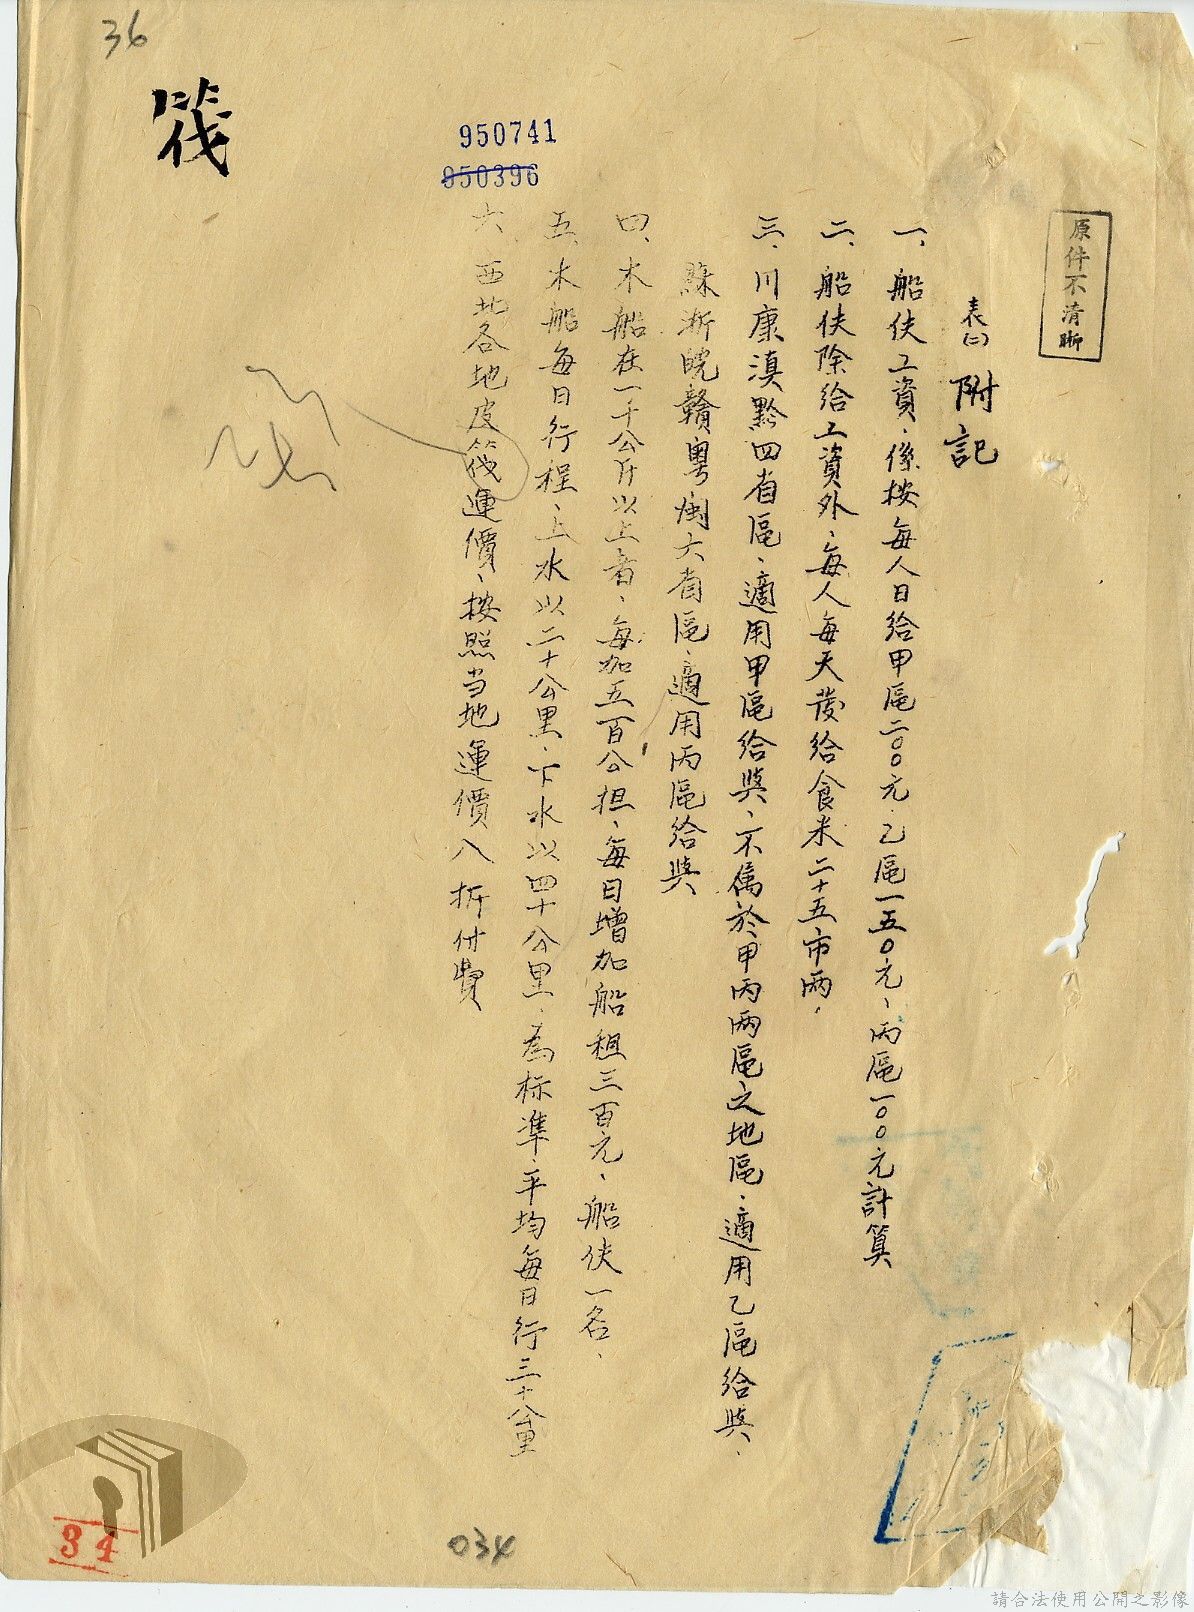 36
筏
950741
950396
原件不清晰
表(二) 附記
一、船伕工資、係按每人日給甲區二00元、乙區一五0元、丙區一00元計算
二、船伕除給工資外、每人每天發給食米二十五市兩、
三、川康滇黔四省區、適用甲區給與、不屬於甲丙兩區之地區、適用乙區給與、
蘇浙皖贛粵閩六省區、適用丙區給與
四、木船在一千公斤以上者、每加五百公担、每日增加船租三百元、船伕一名、
五、木船每日行程、上水以二十公里、下水以四十公里、為标準、平均每日行三十公里
六、西北各地皮筏運價、按照当地運價八折付費
筏
34
034
請合法使用公開之影像